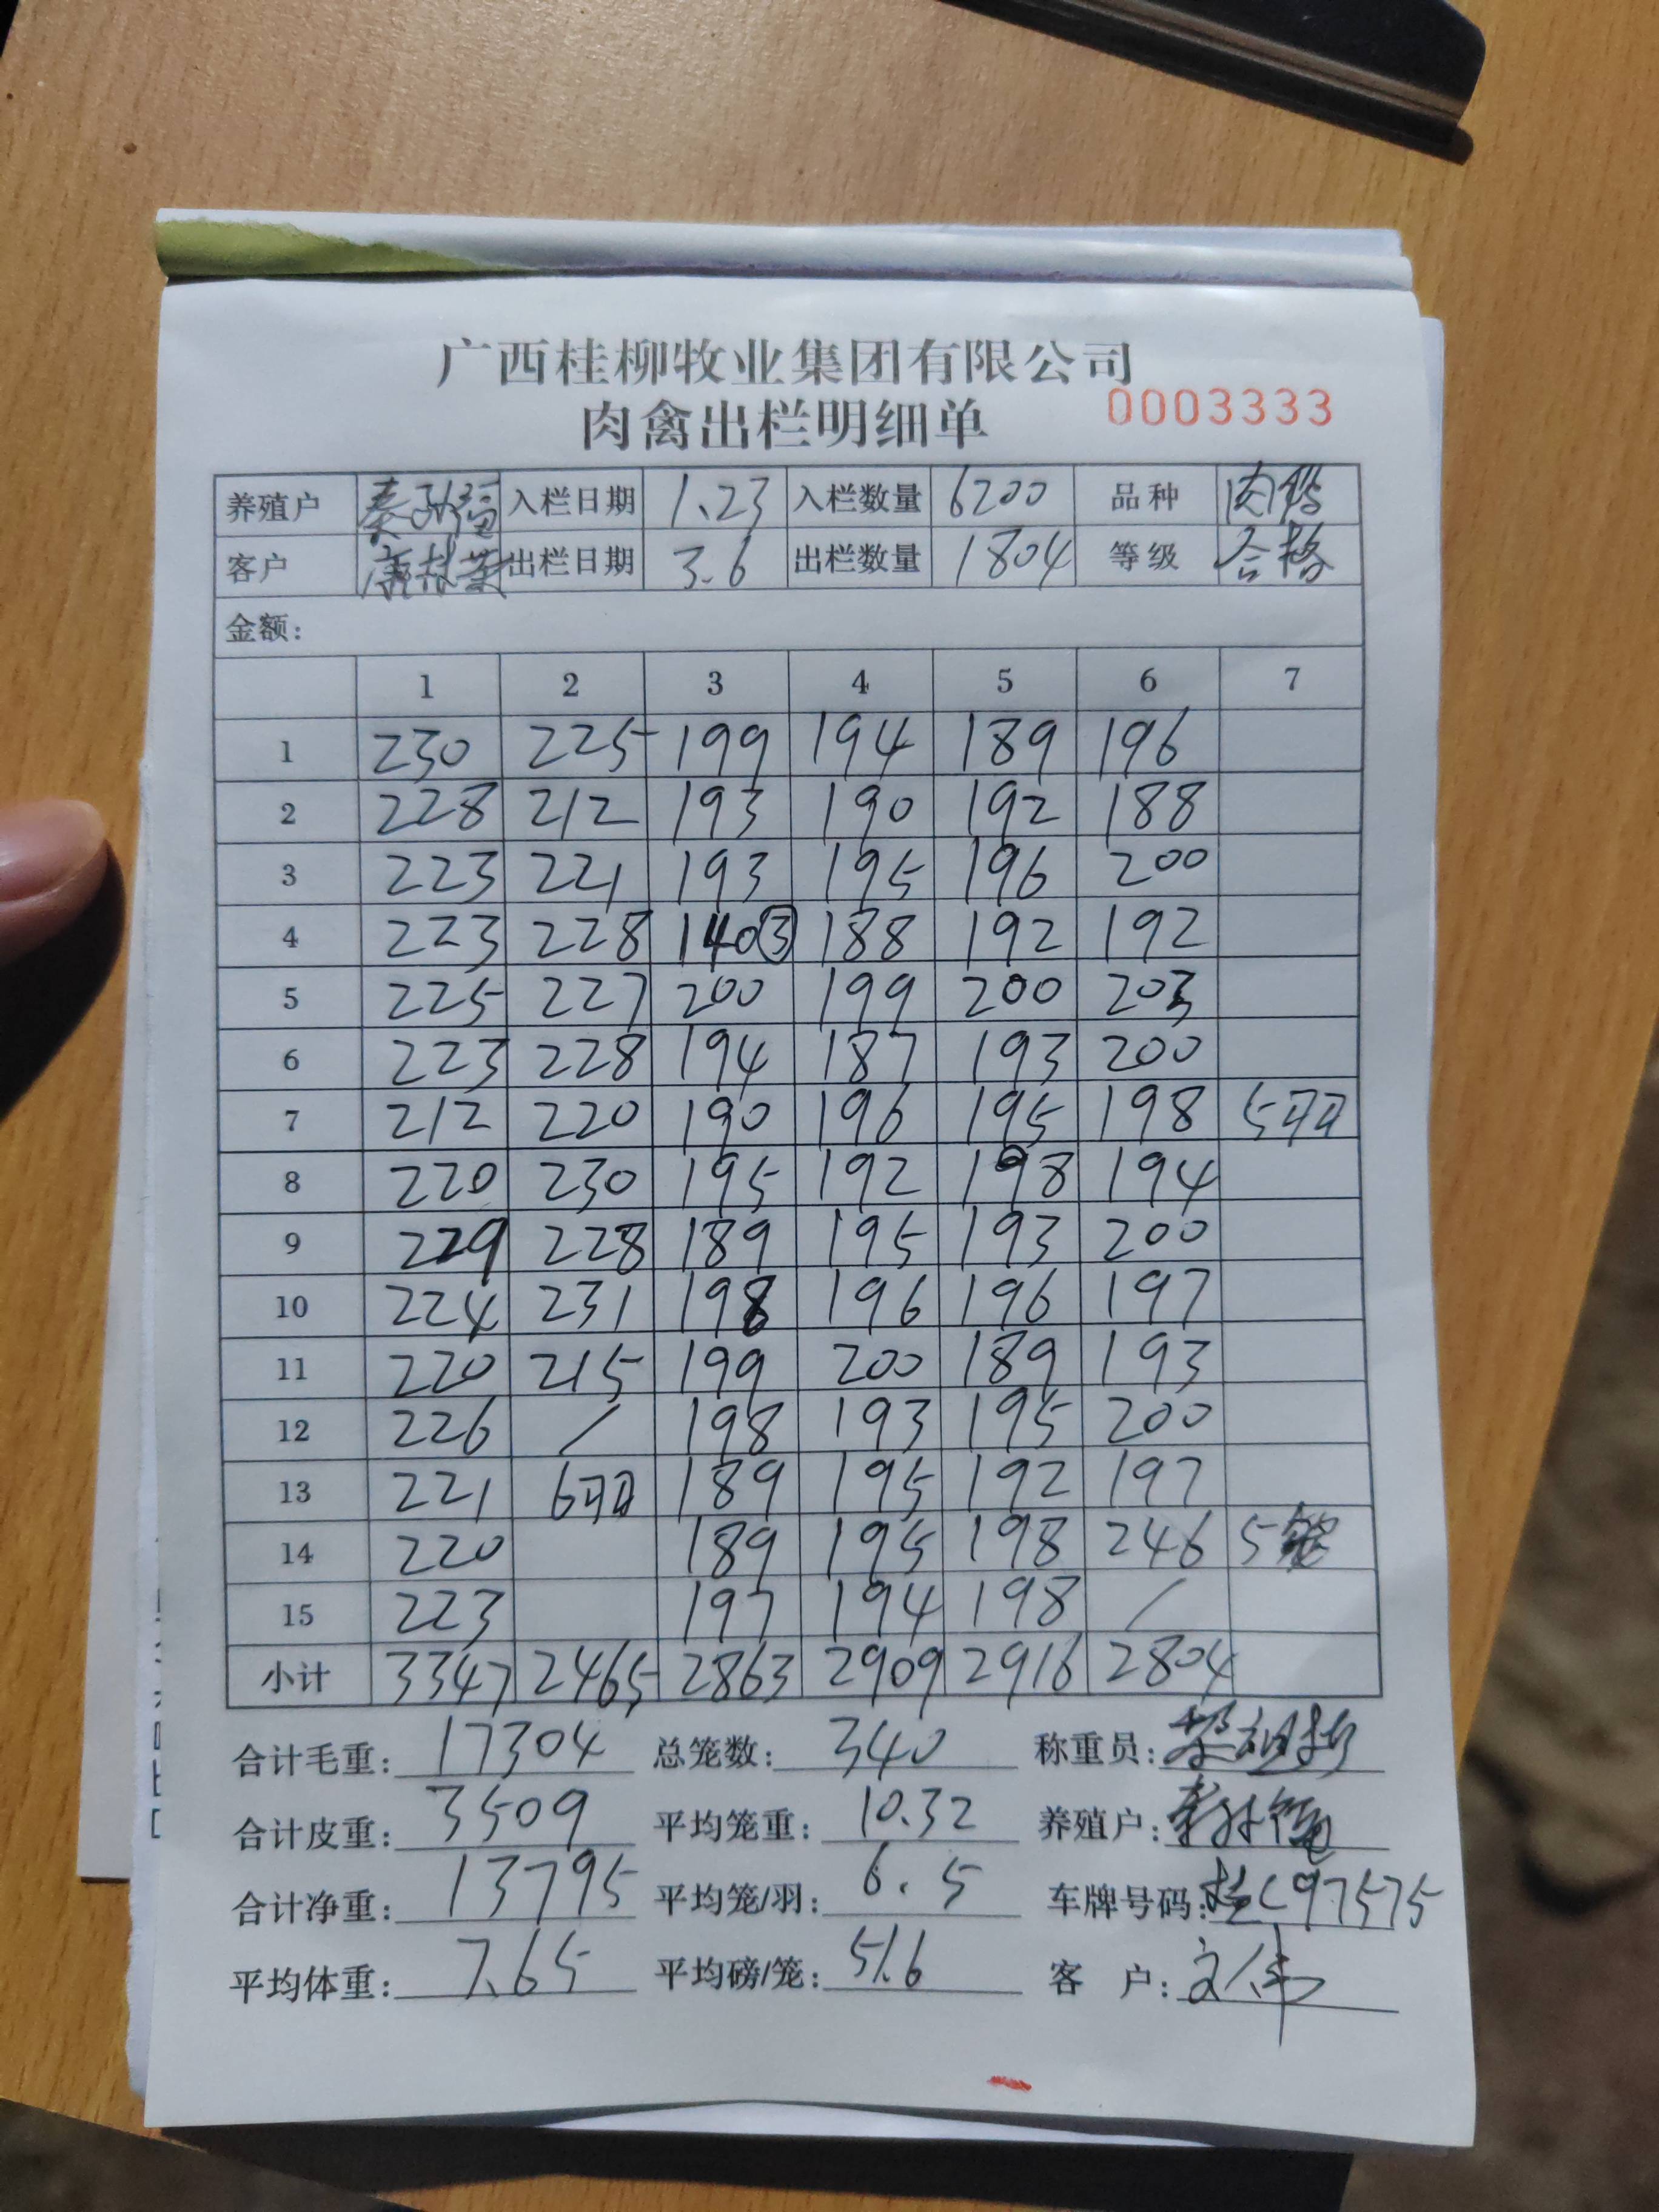 广西桂柳牧业集团有限公司
肉禽出栏明细单 0003333
养殖户 入栏日期 1.23 入栏数量 6200 品种 肉
客户 出栏日期 3.6 出栏数量 1804 等级 合格
金额:
1 2 3 4 5 6 7
1 230 225 199 194 189 196
2 228 212 193 190 192 188
3 223 221 193 195 196 200
4 223 228 140③ 188 192 192
5 225 227 200 199 200 203
6 223 228 194 187 193 200
7 212 220 190 196 195 198 5羽
8 220 230 195 192 198 194
9 229 228 189 195 193 200
10 224 231 198 196 196 197
11 220 215 199 200 189 193
12 226 / 198 193 195 200
13 221 6羽 189 195 192 197
14 220 189 195 198 246 5笼
15 223 197 194 198 /
小计 3347 2465 2863 2909 2916 2804
合计毛重: 17304 总笼数: 340 称重员:
合计皮重: 3509 平均笼重: 10.32 养殖户:
合计净重: 13795 平均笼/羽: 6.5 车牌号码: 桂C97575
平均体重: 7.65 平均磅/笼: 51.6 客 户: 文伟